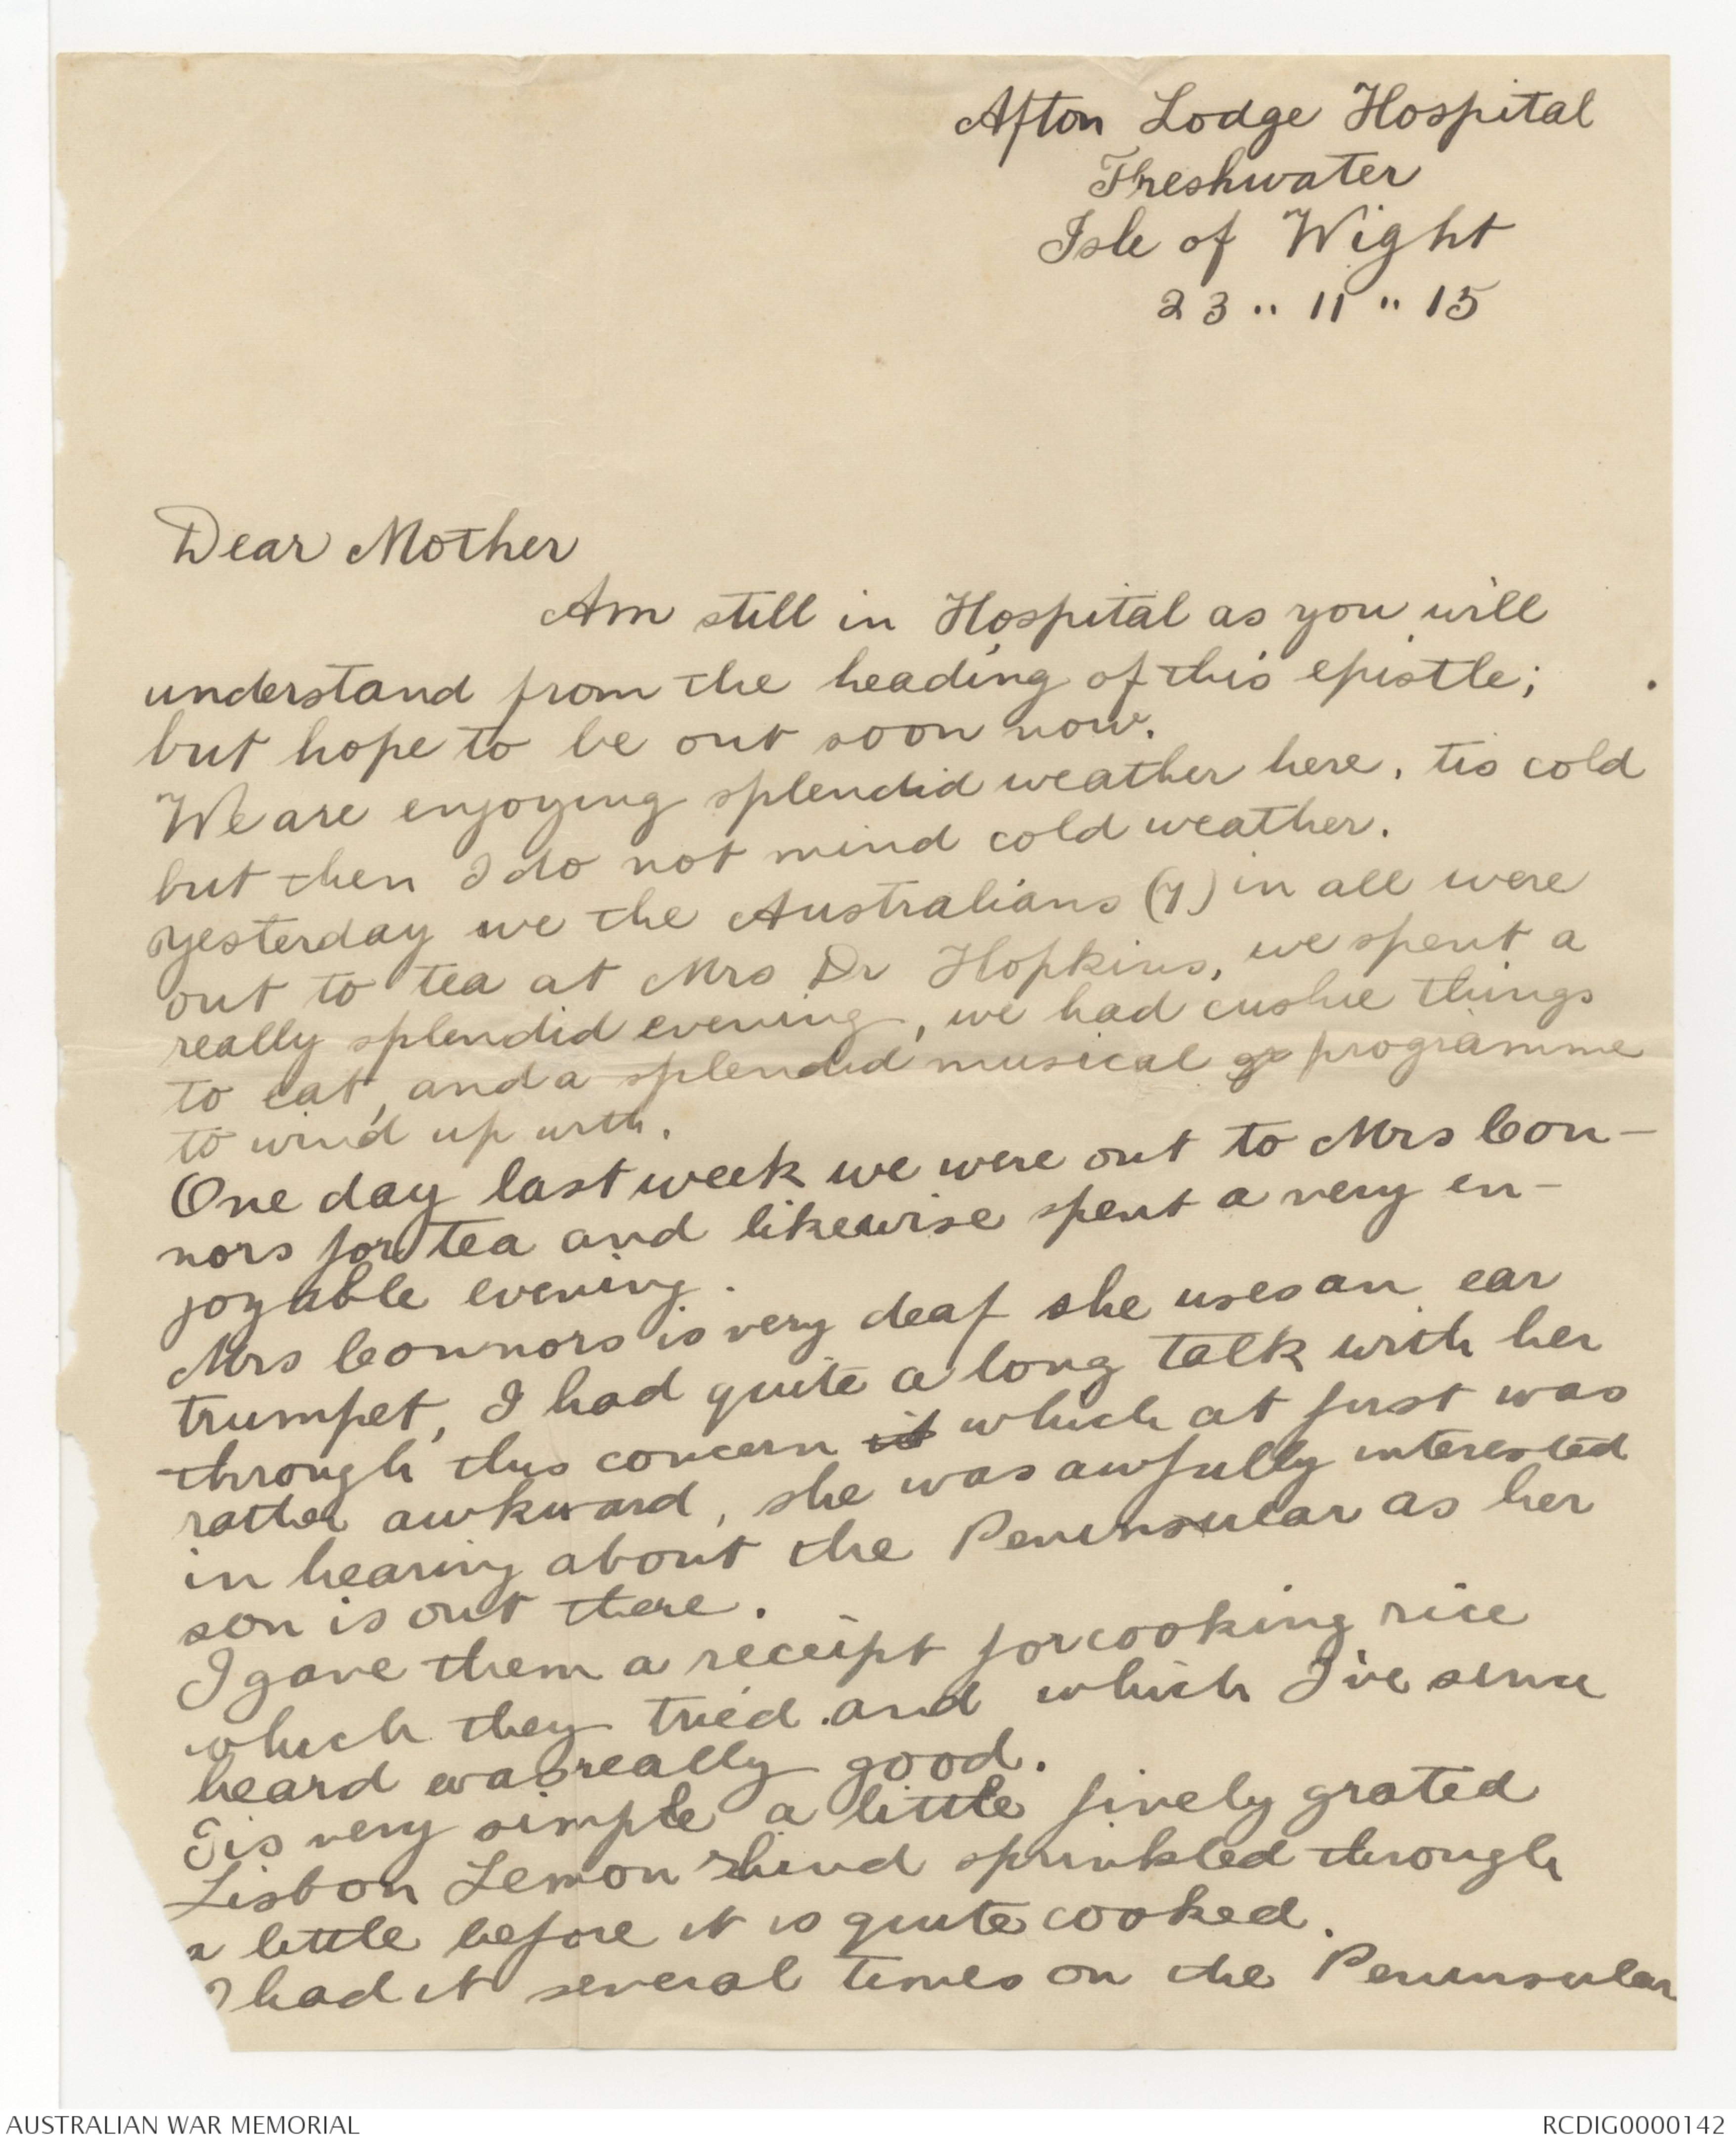 Afton Lodge Hospital
Freshwater
Isle of Wight
23 " 11 " 15
Dear Mother
Am still in Hospital as you will
understand from the heading of this epistle;
but hope to be out soon now.
We are enjoying splendid weather here, tis cold
but then I do not mind cold weather.
Yesterday we the Australians (7) in all were
out to tea at Mrs Dr Hopkins, we spent a
really splendid evening, we had cushie things
to eat, and a splendid musical programme
to wind up with.
One day last week we were out to Mrs Con-
nors for tea and likewise spent a very en-
joyable evening.
Mrs Connors is very deaf she uses an ear
trumpet, I had quite a long talk with her
through this concern it which at first was
rather awkward, she was awfully interested
in hearing about the Peninsular as her
son is out there.
I gave them a receipt for cooking rice
which they tried and which I've since
heard was really good.
Tis very simple a little finely grated
Lisbon Lemon rhind sprinkled through
a little before it is quite cooked.
I had it several times on the Peninsular
AUSTRALIAN WAR MEMORIAL
RCDIG0000142